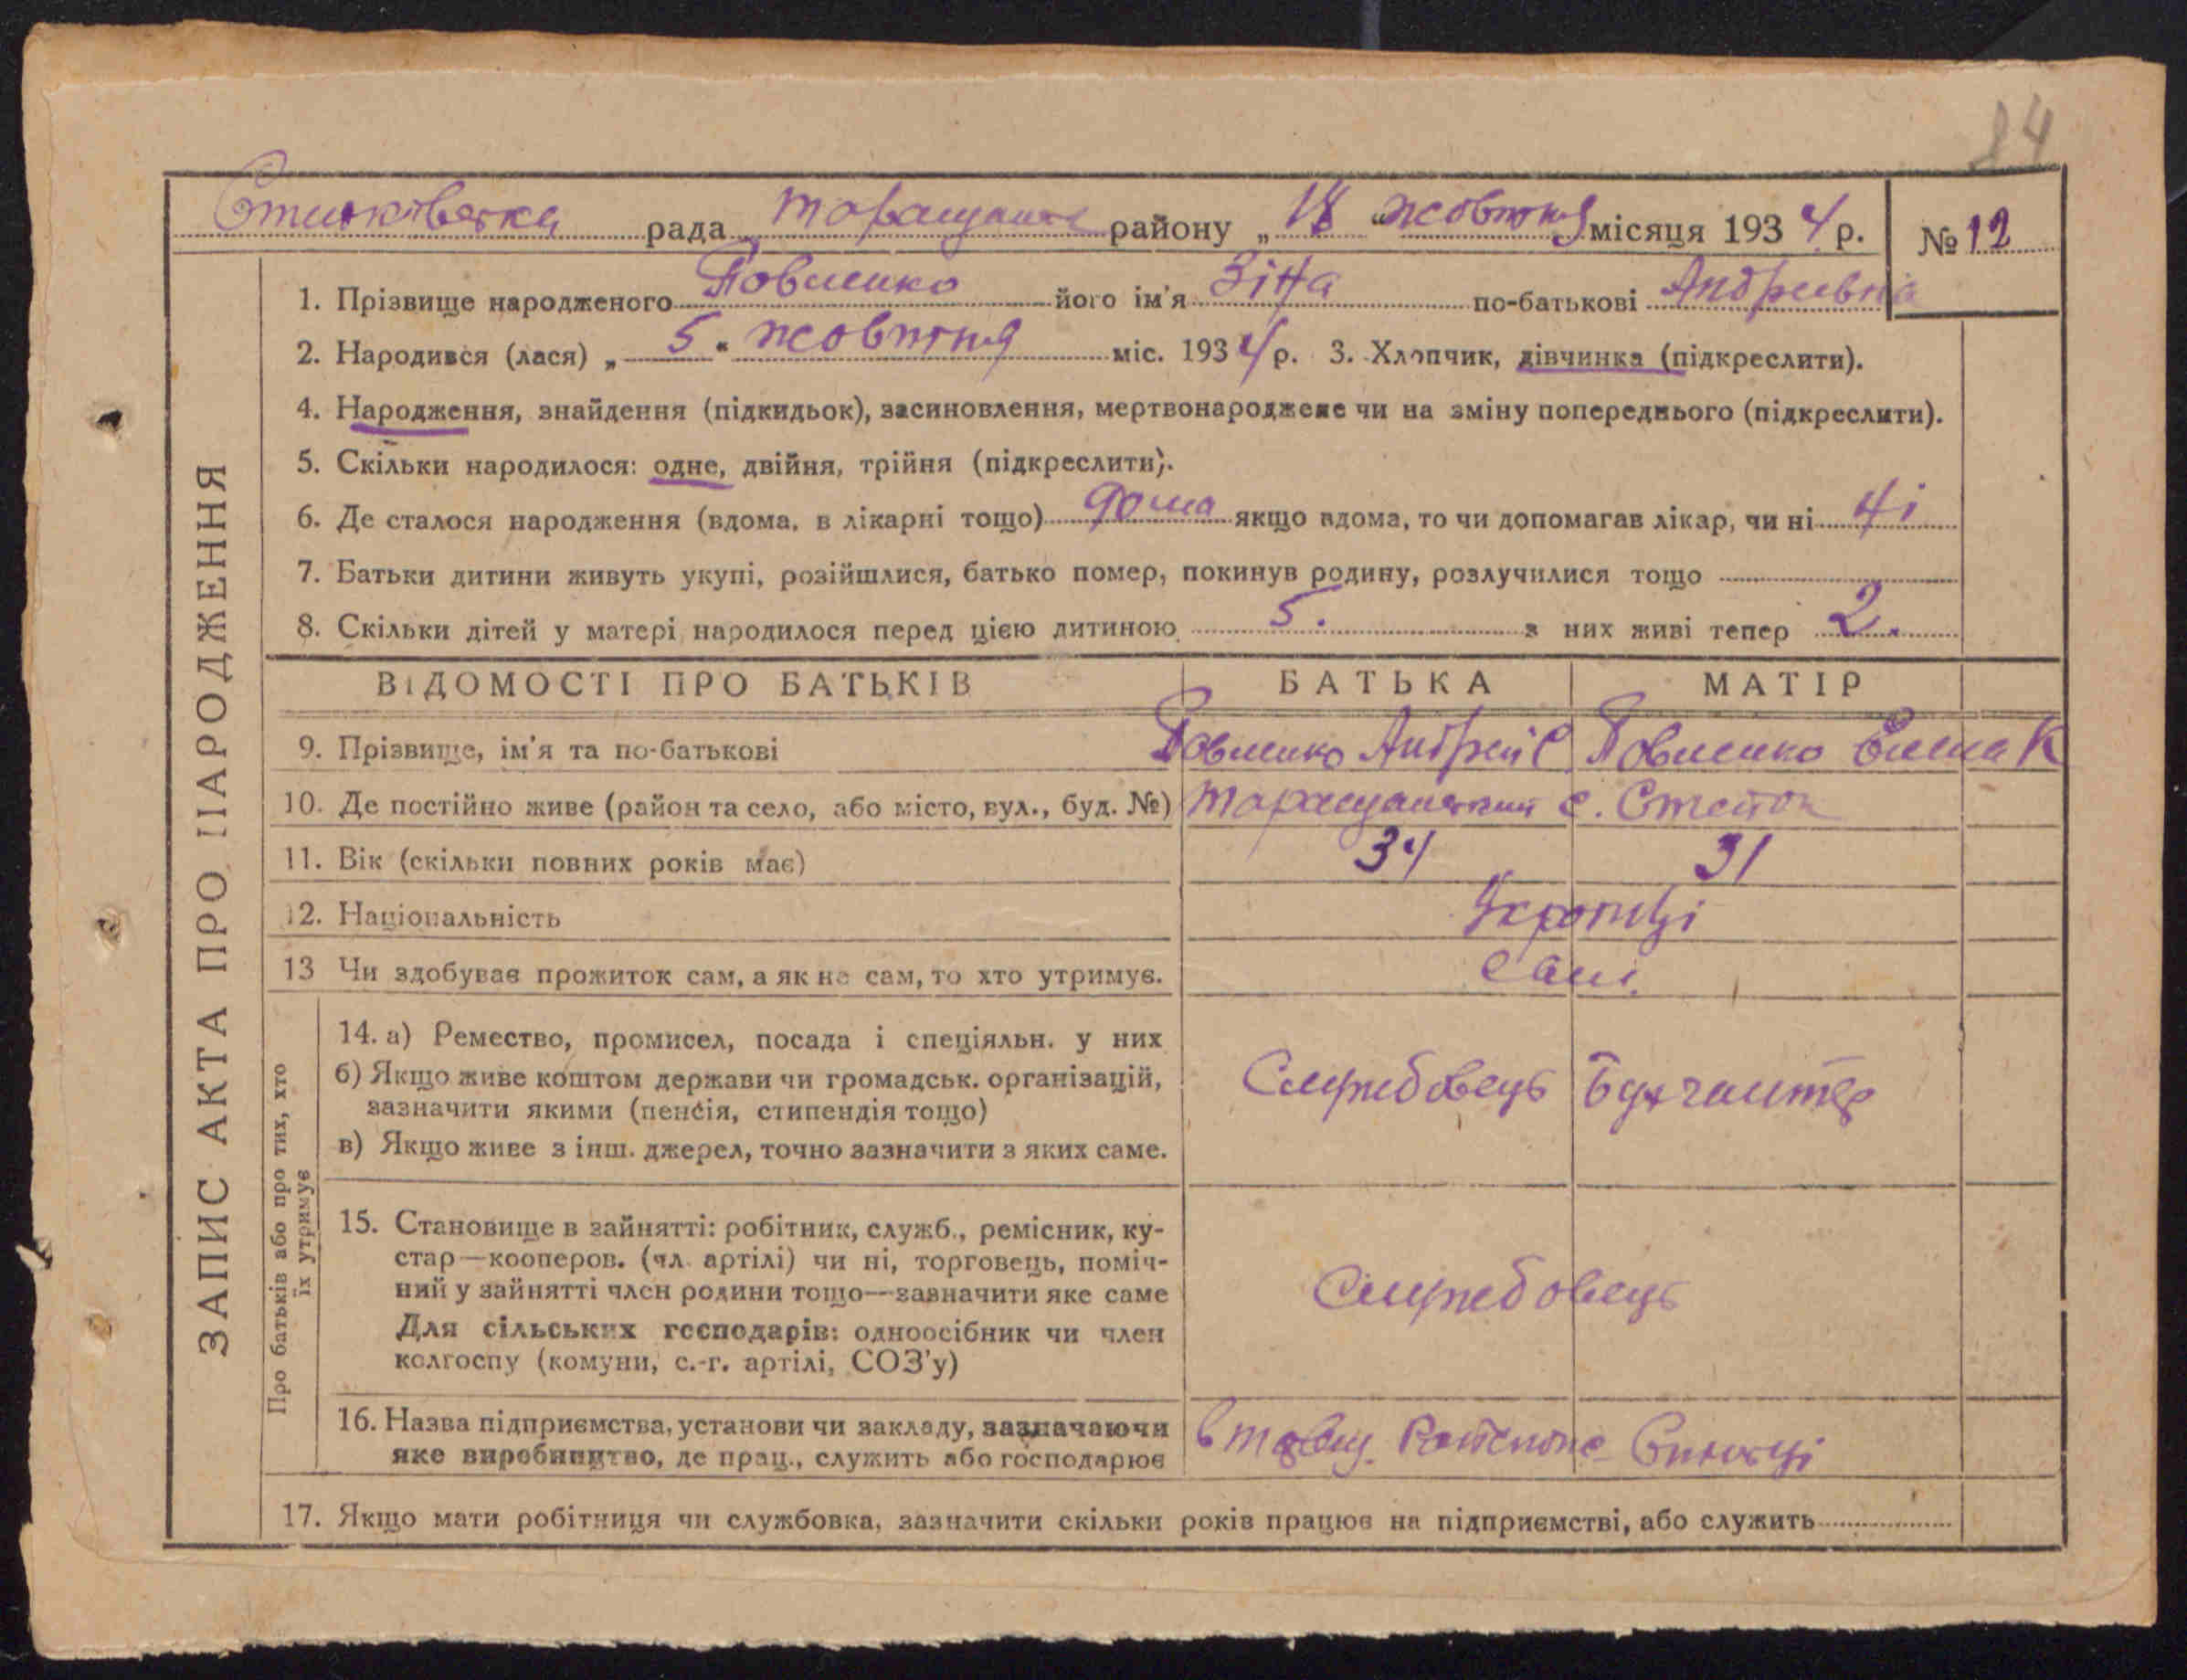 84
рада району „ 18 " жовтня місяця 1934 р. № 12
1. Прізвище народженого Повшенко його ім'я Зіна по-батькові Андрієвна
2. Народився (лася) „ 5 " жовтня міс. 1934 р. 3. Хлопчик, дівчинка (підкреслити).
4. Народження, знайдення (підкидьок), засиновлення, мертвонароджене чи на зміну попереднього (підкреслити).
5. Скільки народилося: одне, двійня, трійня (підкреслити).
6. Де сталося народження (вдома, в лікарні тощо) дома якщо вдома, то чи допомагав лікар, чи ні Ні
7. Батьки дитини живуть укупі, розійшлися, батько помер, покинув родину, розлучилися тощо
8. Скільки дітей у матері народилося перед цією дитиною 5. з них живі тепер 2.
ЗАПИС АКТА ПРО НАРОДЖЕННЯ
ВІДОМОСТІ ПРО БАТЬКІВ БАТЬКА МАТІР
9. Прізвище, ім'я та по-батькові Повшенко Андрей С Повшенко К
10. Де постійно живе (район та село, або місто, вул., буд. №) Таращанский с.
11. Вік (скільки повних років має) 34 31
12. Національність Українці
13 Чи здобуває прожиток сам, а як не сам, то хто утримує. Самі.
Про батьків або про тих, хто
їх утримує
14. а) Ремество, промисел, посада і спеціяльн. у них
б) Якщо живе коштом держави чи громадськ. організацій,
зазначити якими (пенсія, стипендія тощо)
в) Якщо живе з інш. джерел, точно зазначити з яких саме.
Службовець Бухгалтер
15. Становище в зайнятті: робітник, служб., ремісник, ку-
стар—кооперов. (чл. артілі) чи ні, торговець, поміч-
ний у зайнятті член родини тощо—зазначити яке саме
Для сільських господарів: одноосібник чи член
колгоспу (комуни, с.-г. артілі, СОЗ'у)
Службовець
16. Назва підприємства, установи чи закладу, зазначаючи
яке виробництво, де прац., служить або господарює
17. Якщо мати робітниця чи службовка, зазначити скільки років працює на підприємстві, або служить